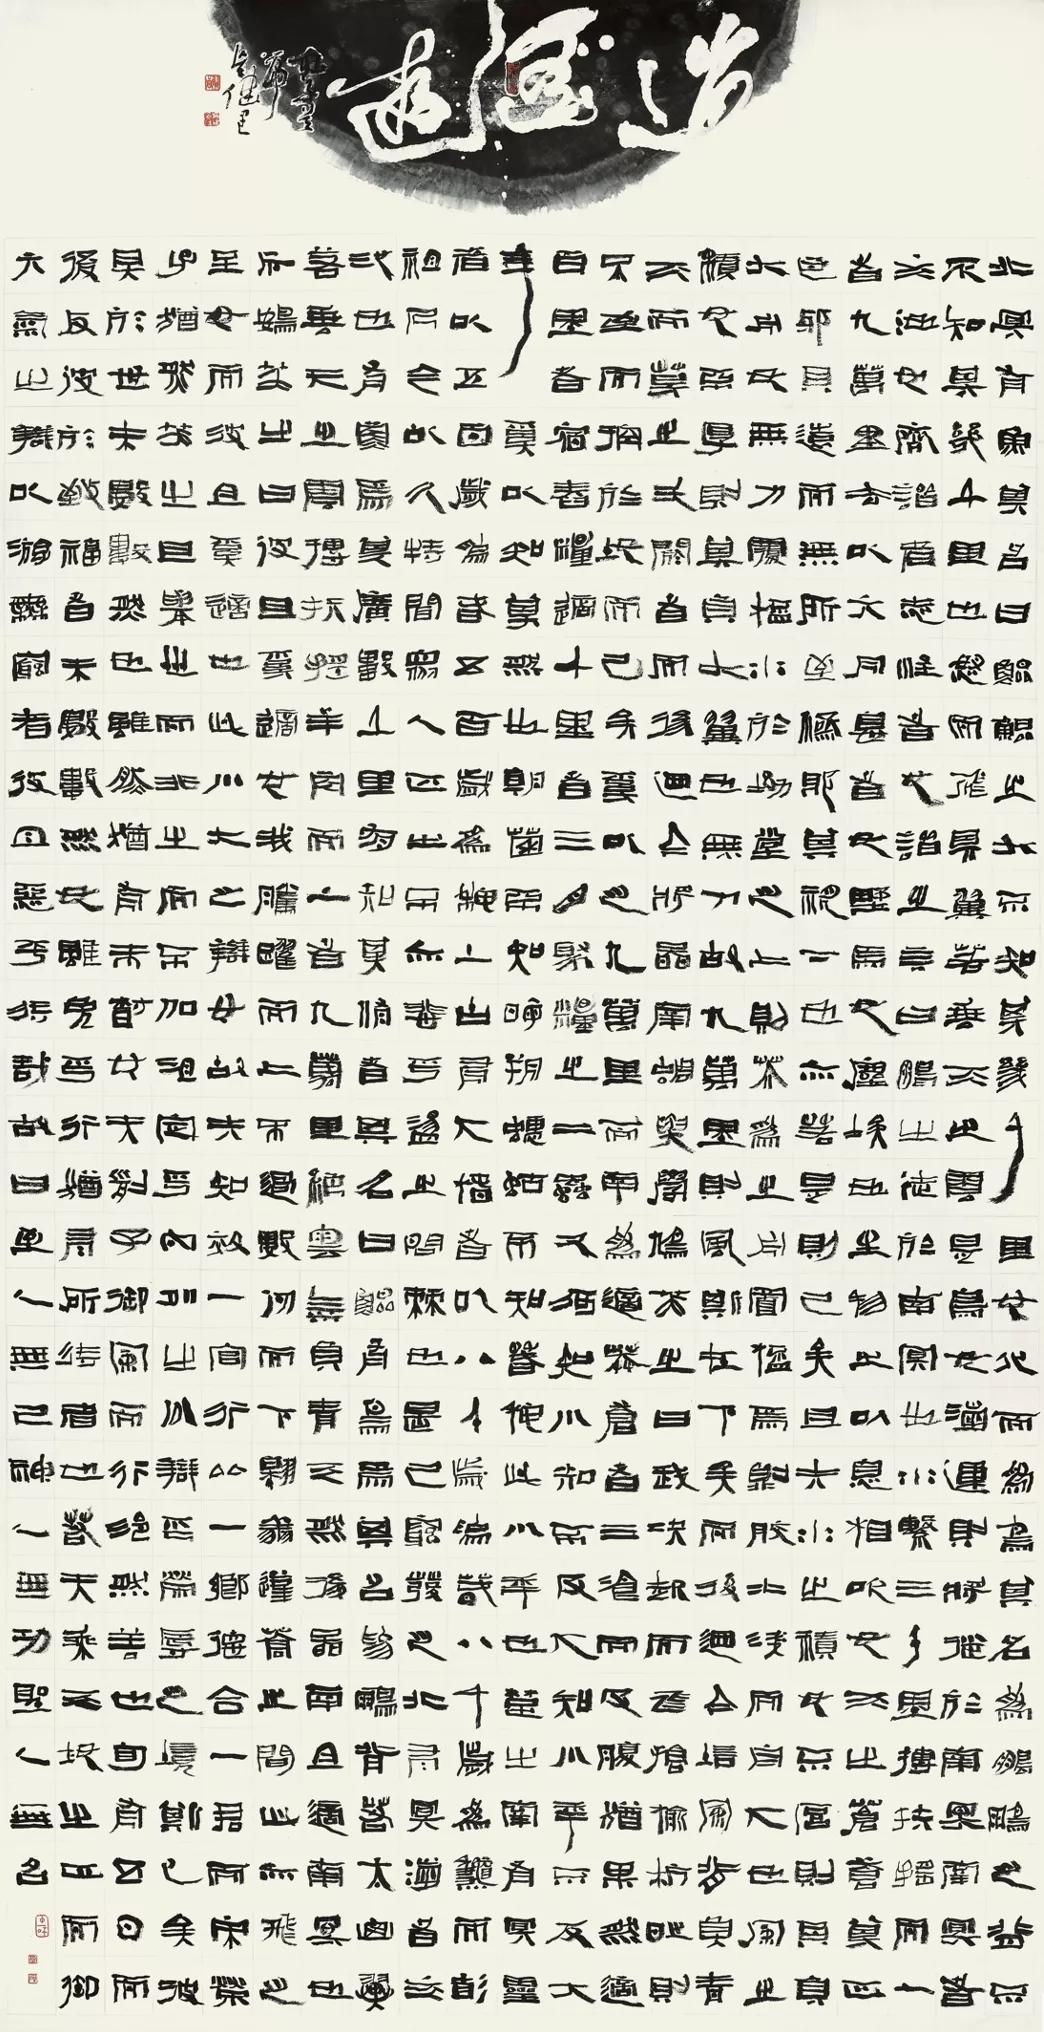 逍遥遊
北冥有魚其名曰鯤鯤之大不知其幾千里也化而為鳥其名為鵬鵬之背不
不知其幾千里也怒而飛其翼若垂天之雲是鳥也海運則將徙於南冥南冥者
天池也齊諧者志怪者也諧之言曰鵬之徙於南冥也水擊三千里摶扶搖而上
者九萬里去以六月息者也野馬也塵埃也生物之以息相吹也天之蒼蒼其正
色邪其遠而無所至極邪其視下也亦若是則已矣且夫水之積也不厚則其負
大舟也無力覆杯水於坳堂之上則芥為之舟置杯焉則膠水淺而舟大也風之
積也不厚則其負大翼也無力故九萬里則風斯在下矣而後乃今培風背負青
天而莫之夭閼者而後乃今將圖南蜩與學鳩笑之曰我決起而飛搶榆枋時則
不至而控於地而已矣奚以之九萬里而南為適莽蒼者三飡而反腹猶果然適
百里者宿舂糧適千里者三月聚糧之二蟲又何知小知不及大知小年不及大
年奚以知其然也朝菌不知晦朔蟪蛄不知春秋此小年也楚之南有冥靈
者以五百歲為春五百歲為秋上古有大椿者以八千歲為春八千歲為秋而彭
祖乃今以久特聞眾人匹之不亦悲乎湯之問棘也是已窮髮之北有冥海者天
池也有魚焉其廣數千里有知其脩者其名曰鯤有鳥焉其名為鵬背若太山翼
若垂天之雲摶扶搖羊角而上者九萬里絕雲氣負青天然後圖南且適南冥也
斥鴳笑之曰彼且奚適也我騰躍而上不過數仞而下翱翔蓬蒿之間此亦飛之
至也而彼且奚適也此小大之辯也故夫知效一官行比一鄉德合一君而宋榮
子猶然笑之且舉世而非之而不加沮定乎內外之分辯乎榮辱之境斯已矣彼
其於世未數數然也雖然猶有未樹也夫列子御風而行泠然善也旬有五日而
後反彼於致福者未數數然此雖免乎行猶有所待者也若夫乘天地之正而御
六氣之辯以游無窮者彼且惡乎待哉故曰至人無己神人無功聖人無名